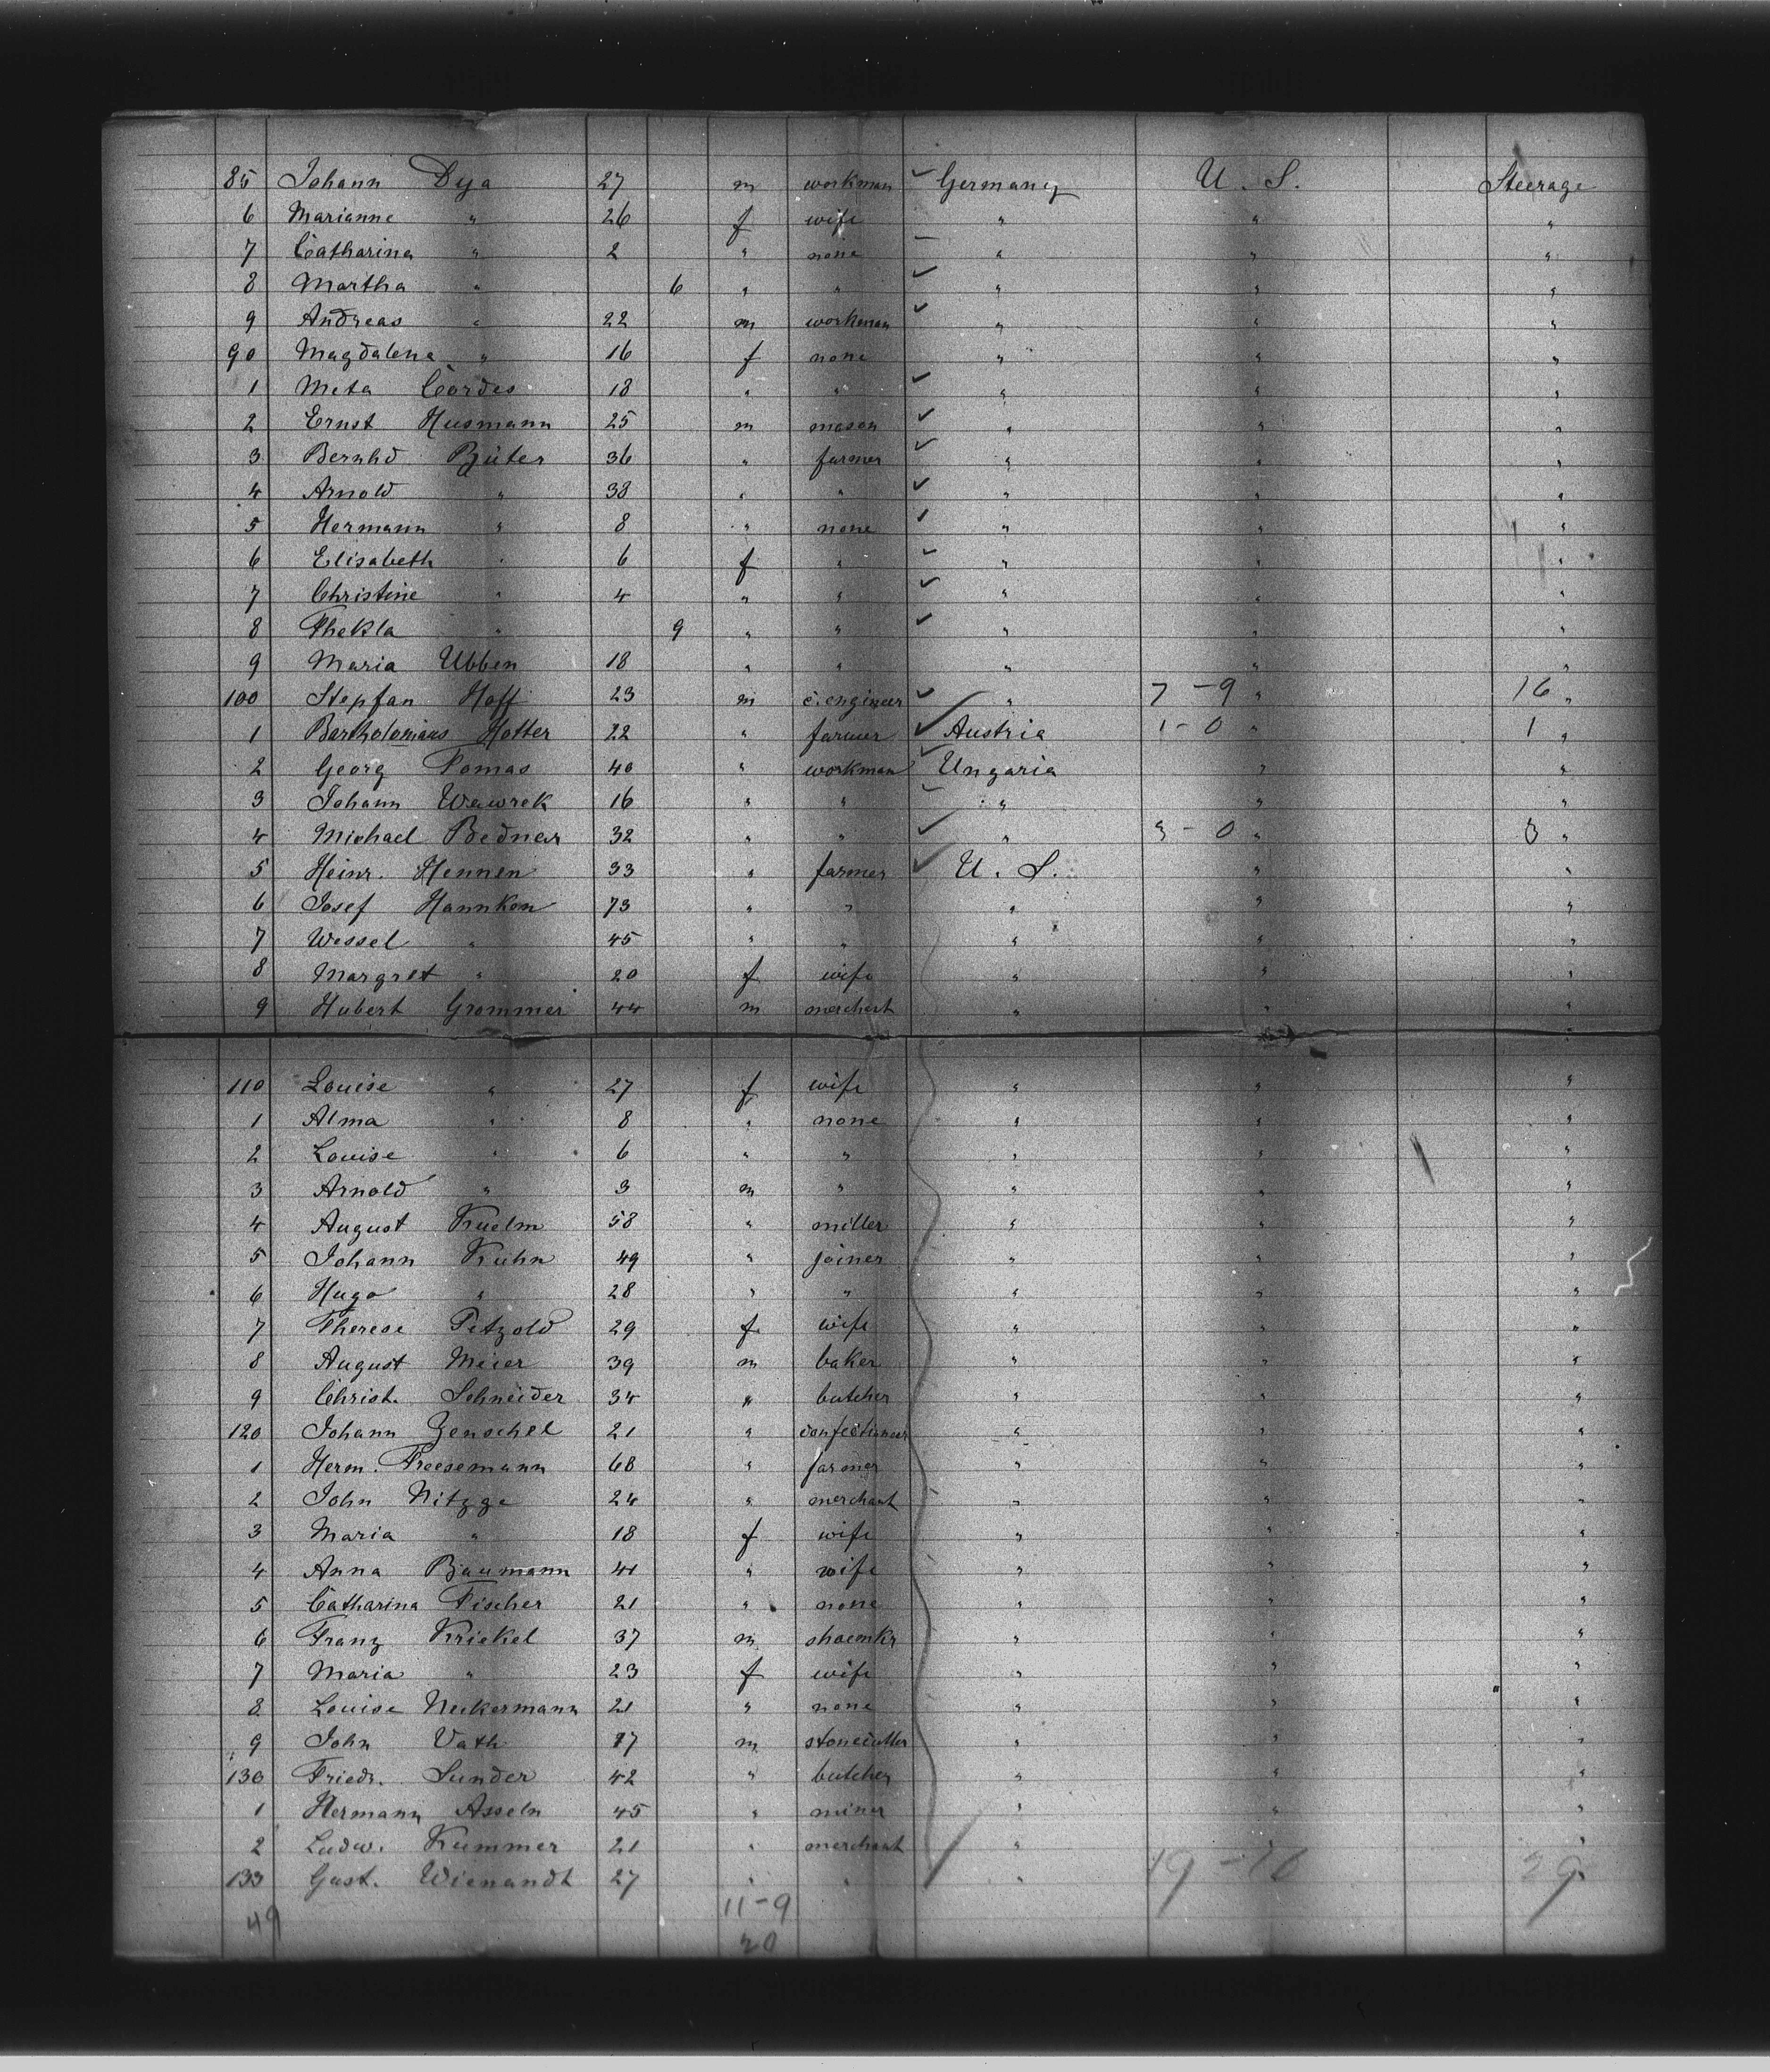 85 Johann Dya 27 m workman ✓ Germany U. S. Steerage
6 Marianne " 26 f wife " " "
7 Catharina " 2 " none – " " "
8 Martha " 6 " " ✓ " " "
9 Andreas " 22 m workman ✓ " " "
90 Magdalena " 16 f none " " "
1 Meta Cordes 18 " " ✓ " " "
2 Ernst Husmann 25 m mason ✓ " " "
3 Bernhd Büter 36 " farmer ✓ " " "
4 Arnold " 38 " " ✓ " " "
5 Hermann " 8 " none ✓ " " "
6 Elisabeth " 6 f " ✓ " " "
7 Christine " 4 " " ✓ " " "
8 Thekla " 9 " " ✓ " " "
9 Maria Ubben 18 " " " " "
100 Stepfan Hoff 23 m c. engineer ✓ " 7 - 9 " 16 "
1 Bartholomäus Hotter 22 " farmer ✓ Austria 1 - 0 " 1 "
2 Georg Tomas 40 " workman ✓ Ungaria " "
3 Johann Wawrek 16 " " – " " "
4 Michael Bednar 32 " " ✓ " 3 - 0 " 3 "
5 Heinr. Hennen 33 " farmer ✓ U. S. " "
6 Josef Hannken 73 " " " " "
7 Wessel " 45 " " " " "
8 Margret " 20 f wife " " "
9 Hubert Grommer 44 m merchant " " "
110 Louise " 27 f wife " " "
1 Alma " 8 " none " " "
2 Louise " 6 " " " " "
3 Arnold " 3 m " " " "
4 August Kuelm 58 " miller " " "
5 Johann Kuhn 49 " joiner " " "
6 Hugo " 28 " " " " "
7 Therese Petzold 29 f wife " " "
8 August Meier 39 m baker " " "
9 Christ. Schneider 34 " butcher " " "
120 Johann Zenschel 21 " confectioneer " " "
1 Herm. Freesemann 68 " farmer " " "
2 John Nitzge 24 " merchant " " "
3 Maria " 18 f wife " " "
4 Anna Baumann 41 " wife " " "
5 Catharina Fischer 21 " none " " "
6 Franz Kriekel 37 m shoemkr " " "
7 Maria " 23 f wife " " "
8 Louise Neckermann 21 " none " " "
9 John Vath 17 m stonecutter " " "
130 Friedr. Sunder 42 " butcher " " "
1 Hermann Asseln 45 " miner " " "
2 Ludw. Kummer 21 " merchant " " "
133 Gust. Wienandt 27 " " " 19 - 10 29
49 11 - 9
20